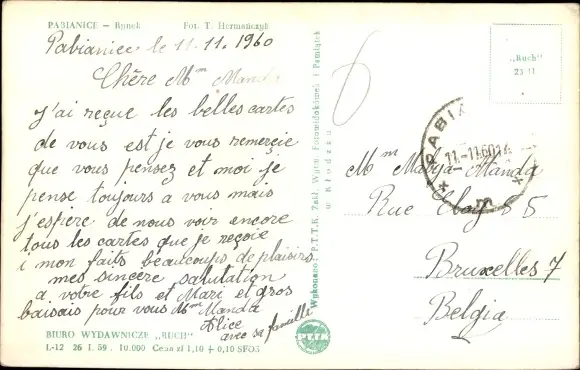 PABIANICE – Rynek Fot. T. Hermańczyk
Pabianice le 11.11.1960
Chère Mm Manda
J'ai reçue les belles cartes
de vous est je vous remerçie
que vous pensez et moi je
pense toujours a vous mais
j'espère de nous voir encore
tous les cartes que je reçoie
i mon faits beaucoups de plaisirs
mes sincère salutation
a votre fils et Mari et gros
baisais pour vous Mm Manda
Alice
avec sa famille
BIURO WYDAWNICZE „RUCH"
L-12 26 I. 59. 10.000 Cena zł 1,10 + 0,10 SFOS
Wykonano: P.T.T.K. Zakł. Wytw. Fotowidokówek i Pamiątek
w Kłodzku
PTTK
„Ruch"
23 II
PABIA
11.-11.60.14
Mm Maryja-Manda
Rue 55
Bruxelles 7
Belgia